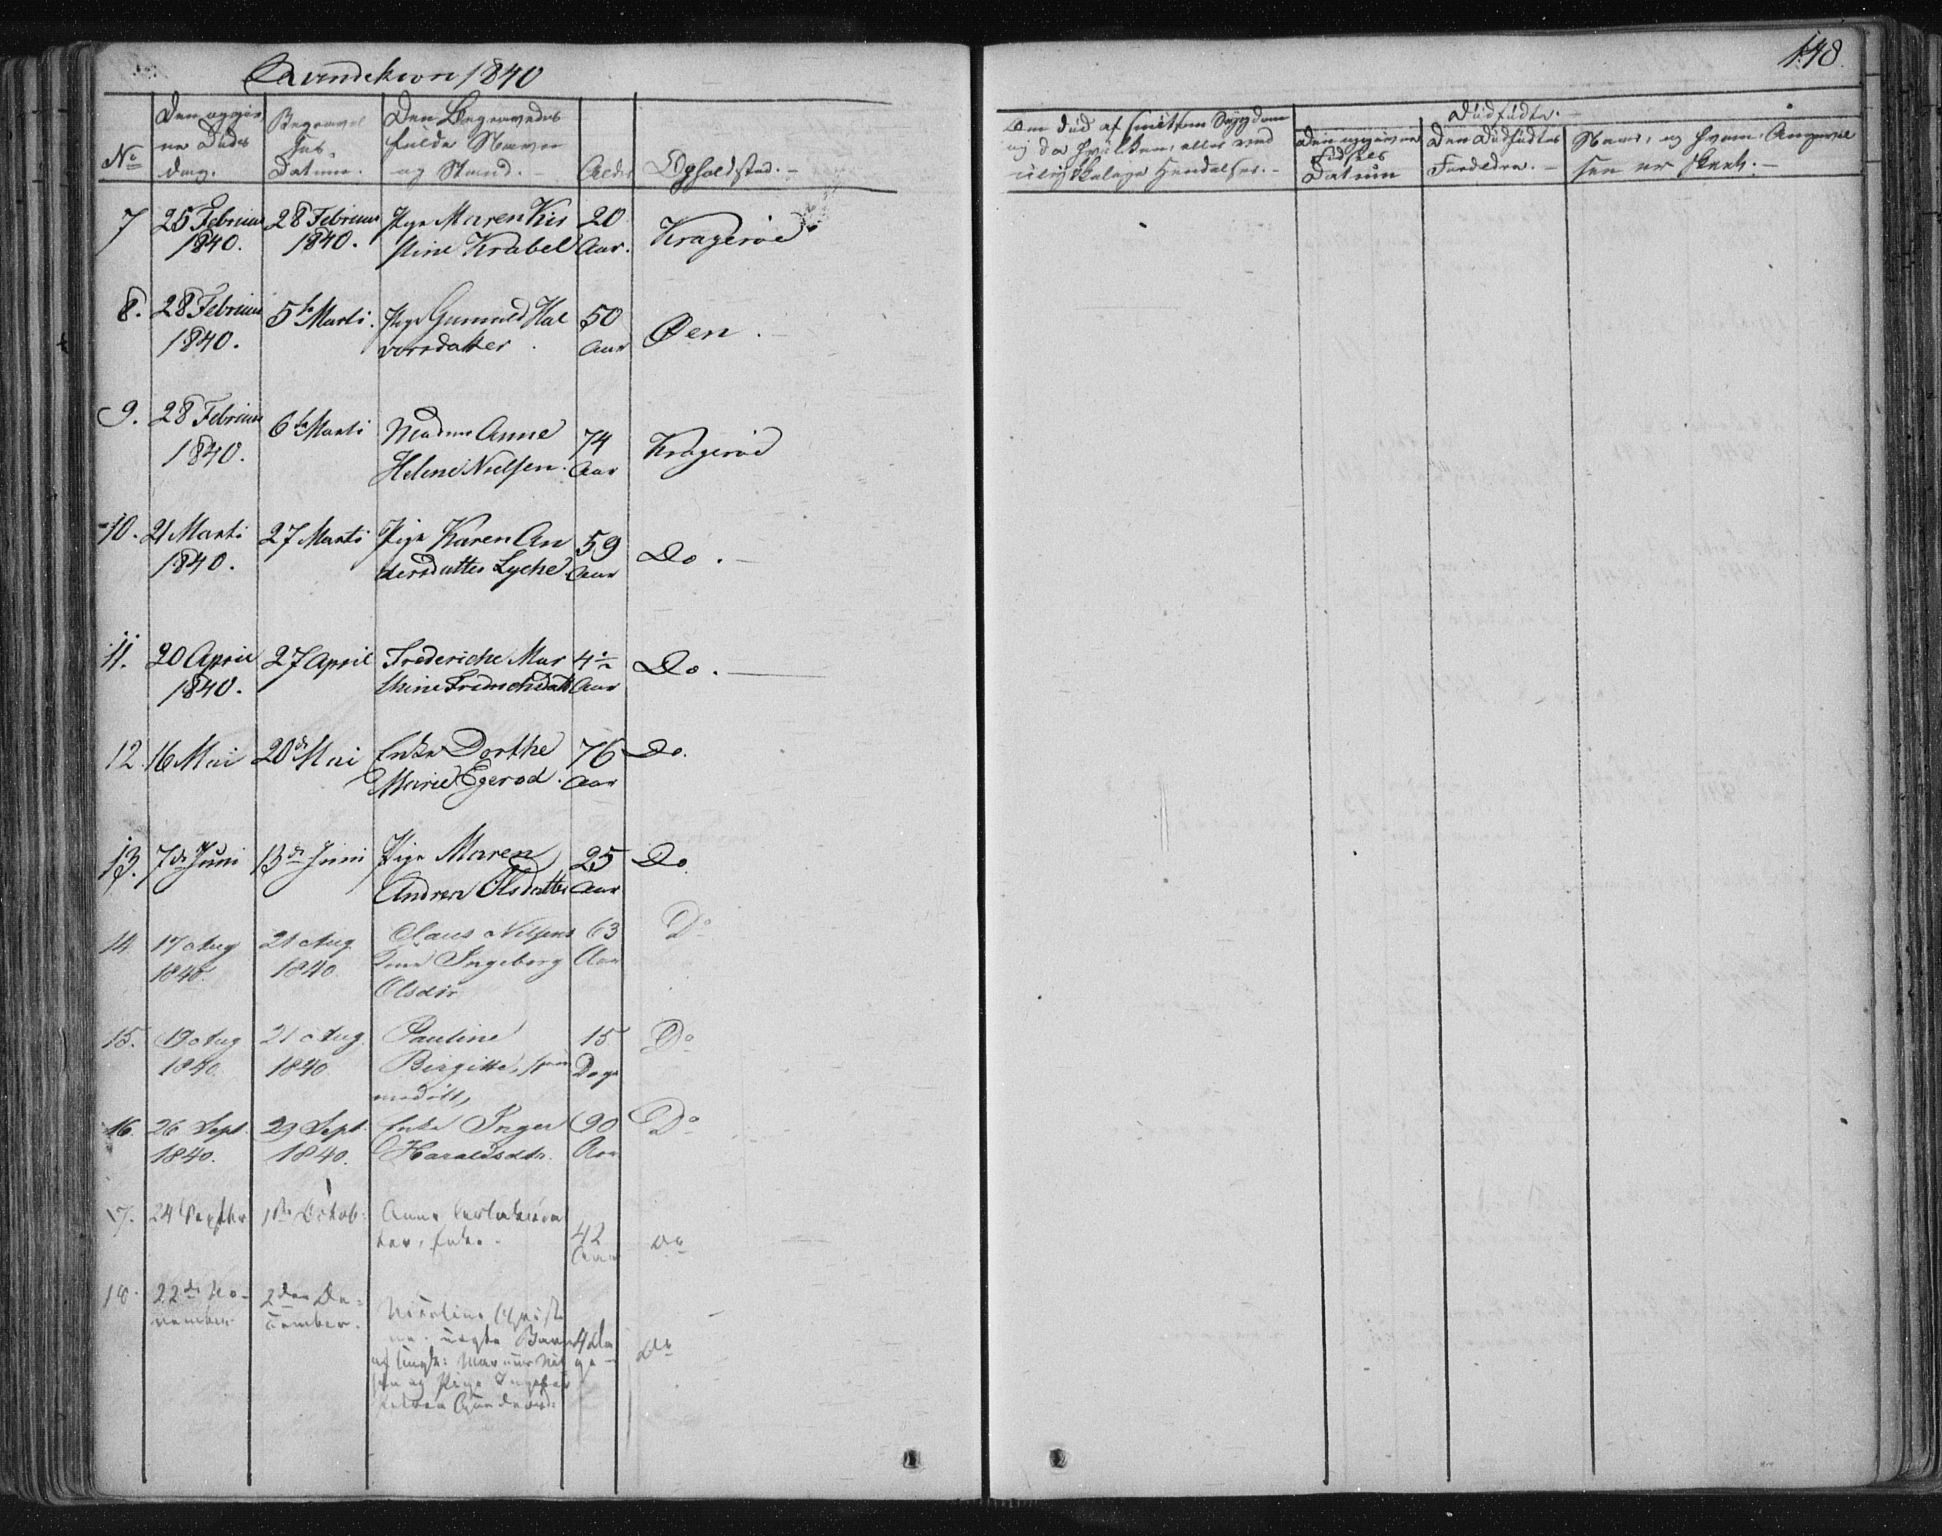 148.
Qvindekiøn 1840
No
Den opgivne Døds dag.
Begravelses Datum.
Den Begravedes fulde Navn og Stand. -
Alder
Opholdsted. -
Om død af smitsom Sygdom
Dødfødte. -
Den opgivne Fødsels Datum
Den Dødfødtes Forældre. -
Naar, og hvem Angivelsen er skeet. -
7 25 Februar 1840. 28 Februar 1840. Pige Maren Kirstine Krabel 20 Aar. Kragerøe
8. 28 Februar 1840. 5te Marti. Pige Gunnild Halvorsdatter. 50 Aar Øen.
9. 28 Februar 1840. 6te Marti Madme Anne Helene Nielsen. 74 Aar Kragerøe
10. 21 Marti 1840. 27 Marti Pige Karen Andersdatter Lyche 59 Aar Do. -
11. 20 April 1840. 27 April Frederiche Marthine Fredrichsdatt 4 1/2 Aar Do. -
12. 16 Mai 20de Mai Enke Dorthe Marie Egerod. 76 Aar Do.
13. 7de Juni 13de Juni Pige Maren Andrea Olsdatter 25 Aar Do.
14 17 Aug 1840. 21 Aug 1840. Claus Nilsens Kone Ingeborg Olsdtr 63 Aar Do
15. 19 Aug 1840 21 Aug. 1840 Pauline Birgitte, 15 Dage Do
16. 26 Sept. 1840. 29 Sept. 1840. Enke Inger Haraldsdtr. 90 Aar Do
17. 24 Septbr 1ste Octob: Anne Enke. 42 Aar Do
18. 22de November 2den December. Nicoline Christine. uægte Barn af Ungk: Nilsen og Pige Gunders: 4 Dage - Do